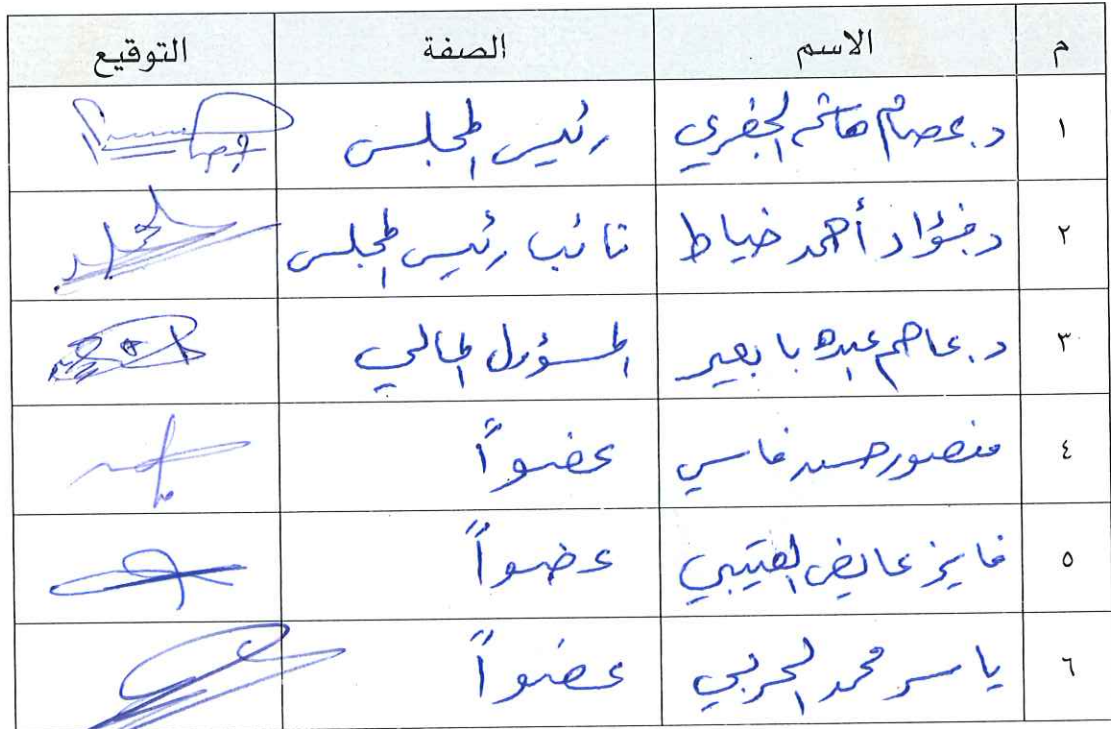 م الاسم الصفة التوقيع
١ د. عصام هاشم الجفري رئيس المجلس
٢ د. فؤاد أحمد خياط نائب رئيس المجلس
٣ د. عاصم عبده بابعير المسؤول المالي
٤ منصور حسن فاسي عضواً
٥ فايز عايض العتيبي عضواً
٦ ياسر محمد الحربي عضواً